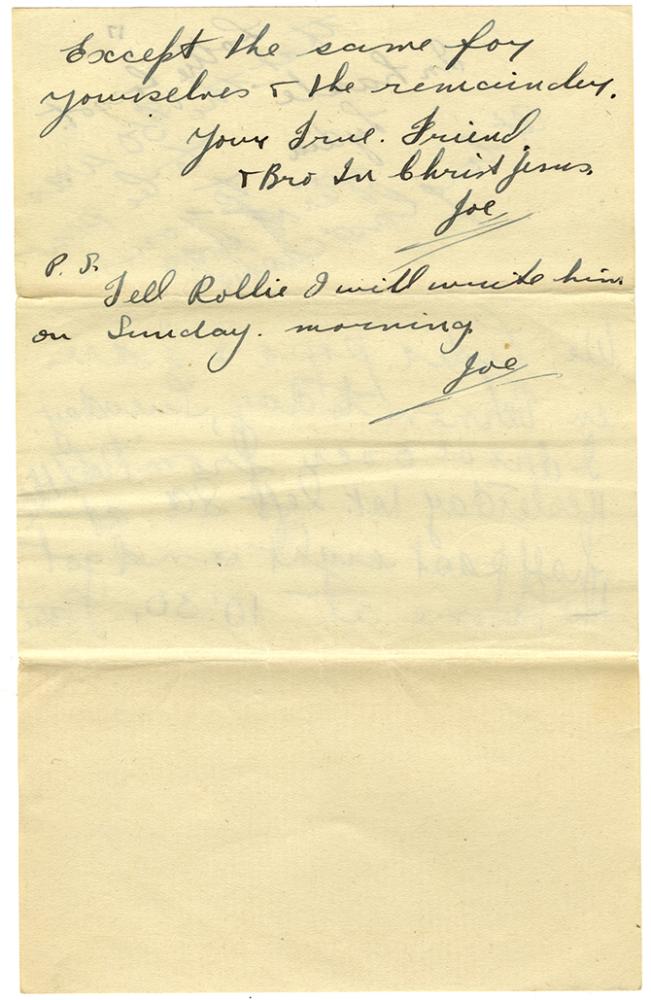 Except the same for
yourselves & the remainder.
Your True. Friend
& Bro In Christ Jesus.
Joe
P. S.
Tell Rollie I will write him
on Sunday. morning
Joe